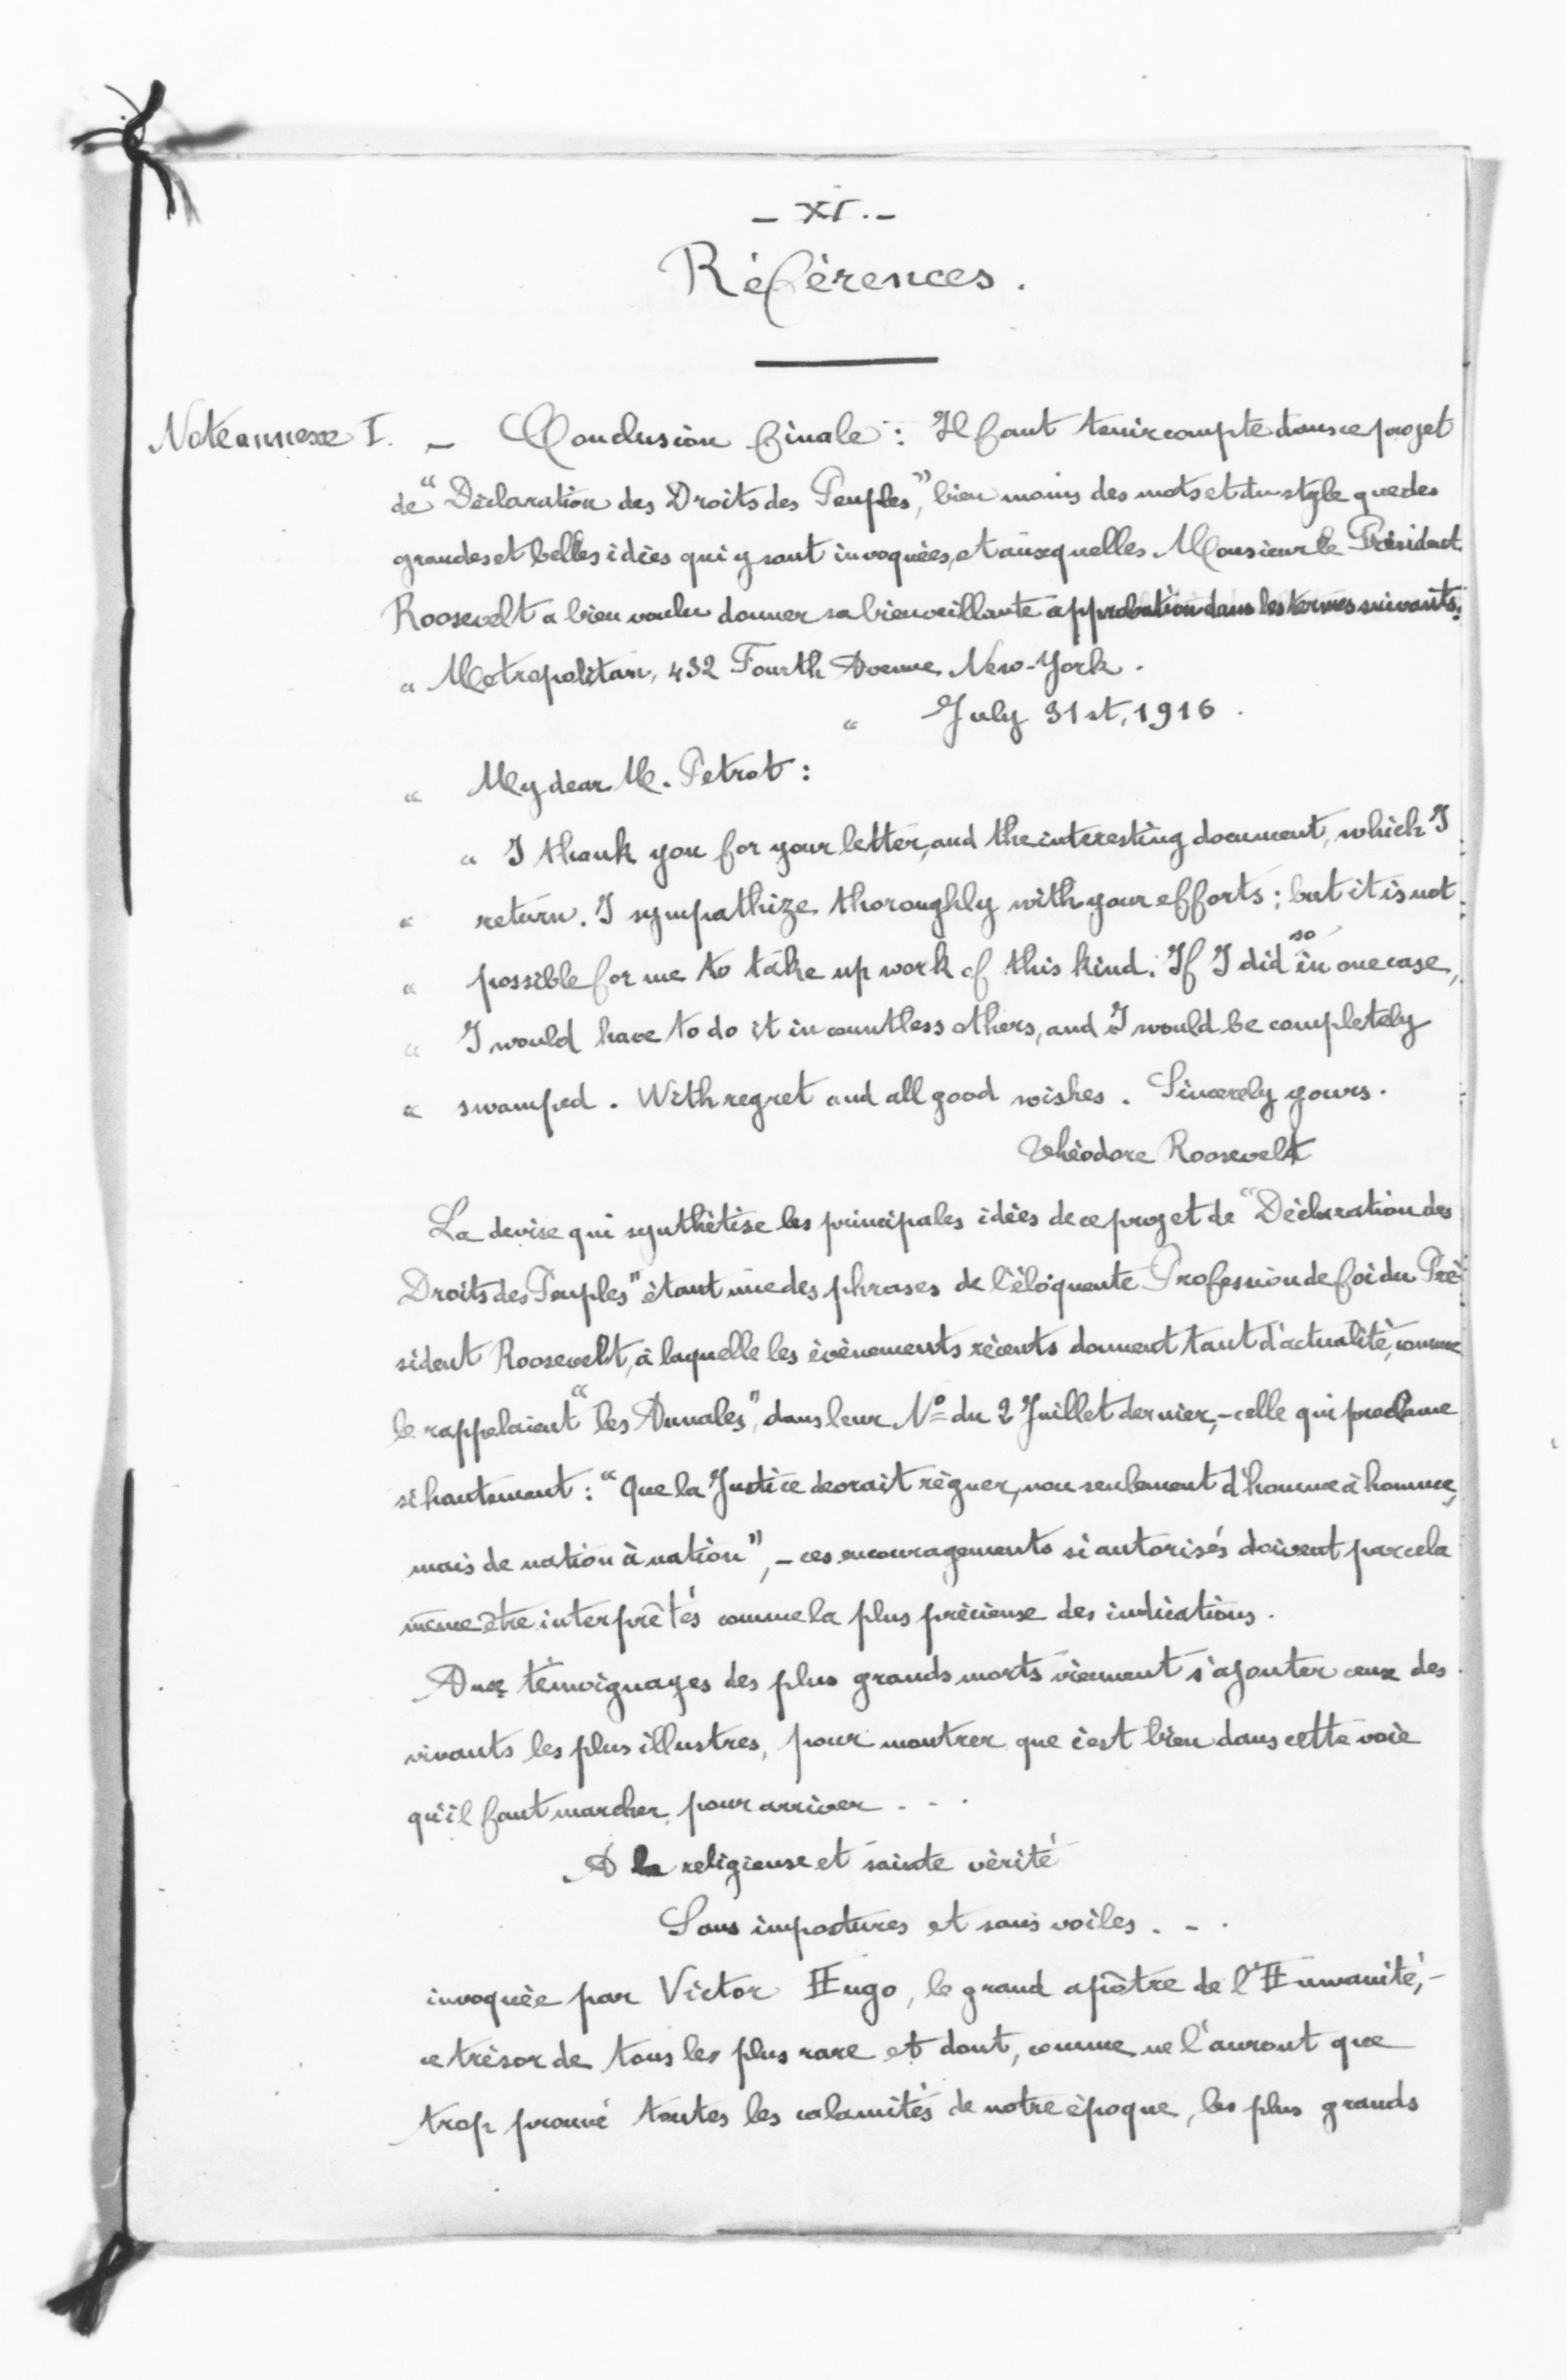 - XI. -
Références.
Note annexe I. - Conclusion finale : Il faut tenir compte dans ce projet
de "Déclaration des Droits des Peuples", bien moins des mots et du style que des
grandes et belles idées qui y sont invoquées, et auxquelles Monsieur le Président
Roosevelt a bien voulu donner sa bienveillante approbation dans les termes suivants:
" Metropolitan, 432 Fourth Avenue New-York.
" July 31st, 1916.
" My dear M. Petrot :
" I thank you for your letter, and the interesting document, which I
" return. I sympathize thoroughly with your efforts ; but it is not
" possible for me to take up work of this kind. If I did so in one case,
" I would have to do it in countless others, and I would be completely
" swamped. With regret and all good wishes. Sincerely yours.
Théodore Roosevelt
La devise qui synthétise les principales idées de ce projet de "Déclaration des
Droits des Peuples" étant une des phrases de l'éloquente Profession de foi du Pré-
sident Roosevelt, à laquelle les évènements récents donnent tant d'actualité, comme
le rappelaient "les Annales", dans leur No du 2 Juillet dernier, - celle qui proclame
si hautement : "Que la Justice devrait régner, non seulement d'homme à homme,
mais de nation à nation", - ces encouragements si autorisés doivent par cela
même être interprêtés comme la plus précieuse des indications.
Aux témoignages des plus grands morts viennent s'ajouter ceux des
vivants les plus illustres, pour montrer que c'est bien dans cette voie
qu'il faut marcher pour arriver . . .
A la religieuse et sainte vérité
Sans impostures et sans voiles . . .
invoquée par Victor Hugo, le grand apôtre de l'Humanité, -
ce trésor de tous les plus rare et dont, comme ne l'auront que
trop prouvé toutes les calamités de notre époque, les plus grands